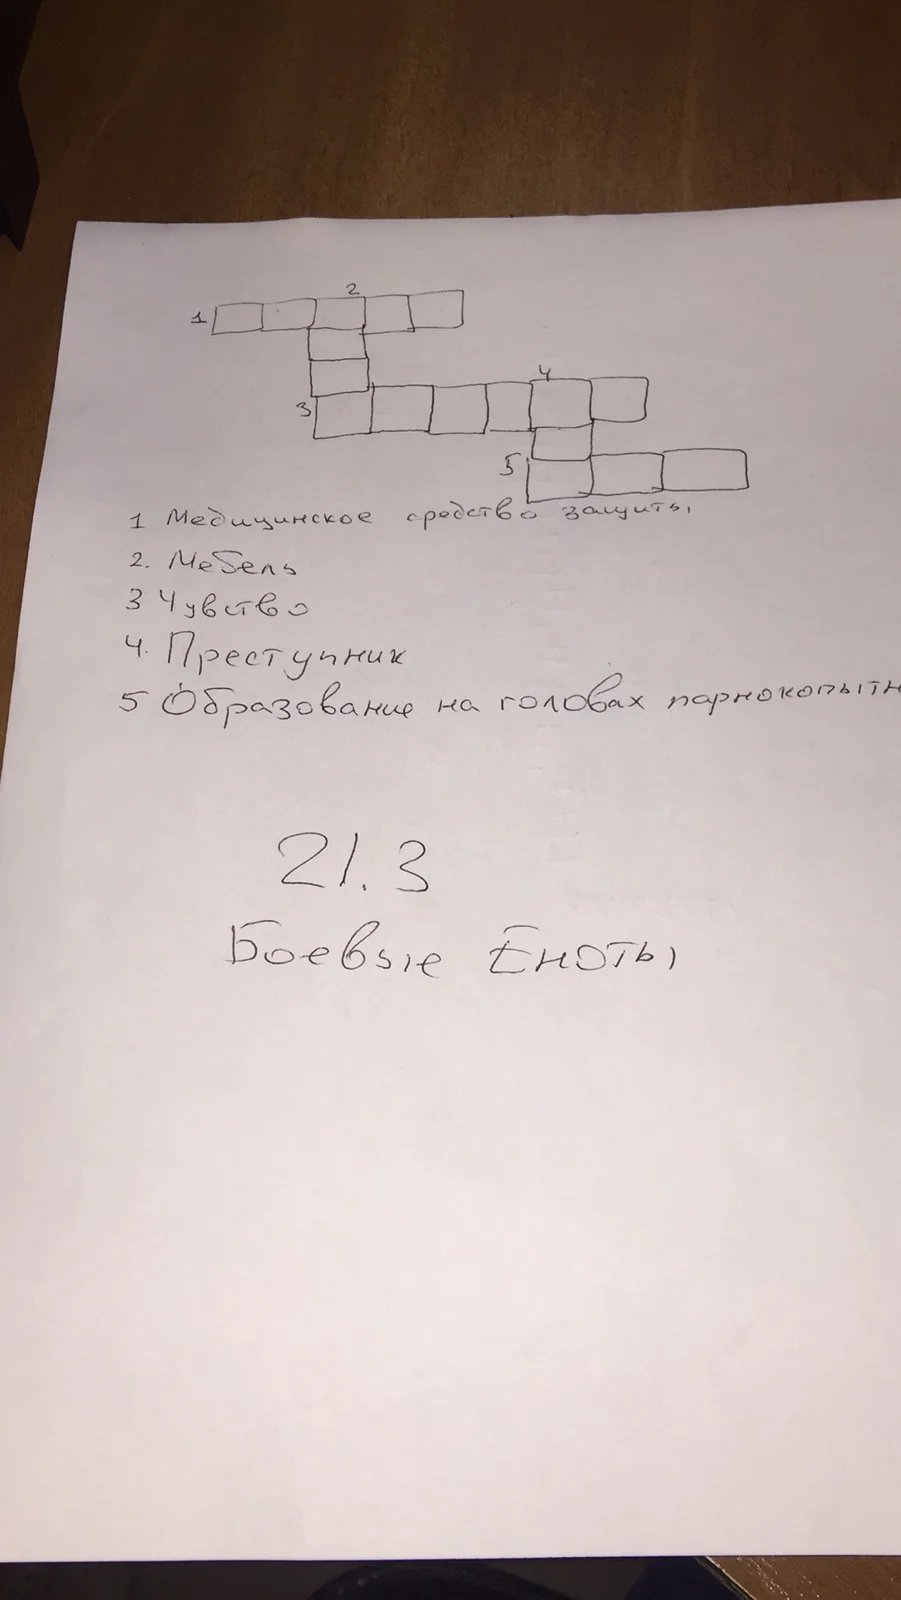 2
1
4
3
5
1 Медицинское средство защиты
2. Мебель
3 Чувство
4. Преступник
5 Образование на головах парнокопытн
21.3
Боевые Еноты